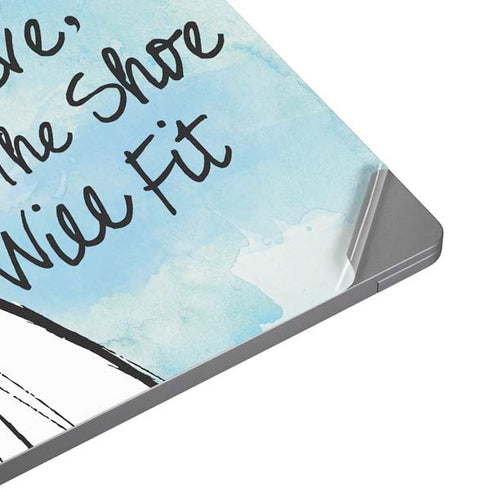 the Shoe
Will Fit